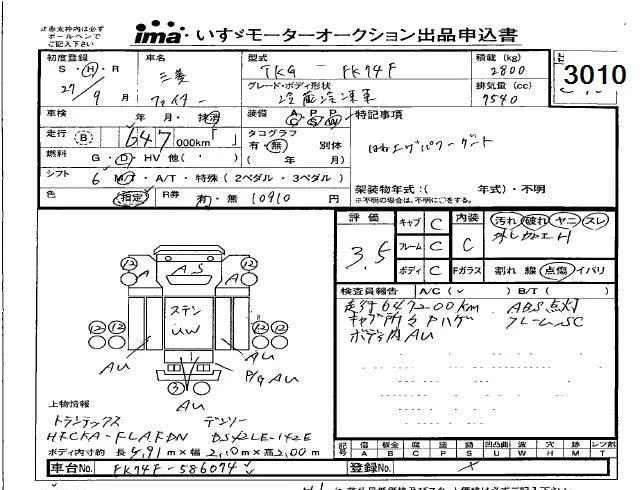 は赤太枠内は必ず
ボールペンで
ご記入下さい
ima・いすゞモーターオークション出品申込書
初度登録 車名 型式 積載 (kg)
S・H・R 三菱 TKG - FK74F 2800
27/9月 ファイター グレード・ボディ形状 排気量 (cc)
冷蔵冷凍車 7540
3010
車検 年・月・抹消 装備 A P P 特記事項
走行 B 647,000km「 」 タコグラフ
有・無 別体
燃料 G・D・HV 他( ・ ) ( 年 月)
シフト 6 M/T・A/T・特殊 (2ペダル・3ペダル) 架装物年式:( 年式)・不明
※不明の場合は、不明に○をする。
色 指定 R券 有・無 10910 円
評価 キャブ C 内装 汚れ 破れ ヤニ スレ
3.5 フレーム C C
ボディ C Fガラス 割れ 線 点傷 イバリ
検査員報告 A/C(✓) B/T( )
走行647200km ABS点灯
キャブ所々Pハゲ フレームSC
ボディ内AU
12 A A S A 12
12 12 ステン 12 12
UW
AU AU
P/G AU
3
AU
上物情報
トランテックス デンソー
ボディ内寸約 長 4.91m×幅 2.10m×高 2.00m
記号 傷 板金 腐 塗 錆 凹凸曲 波 穴 無 レンズ割
A B C P S U W H M T
車台No. FK74F-586074 登録No.